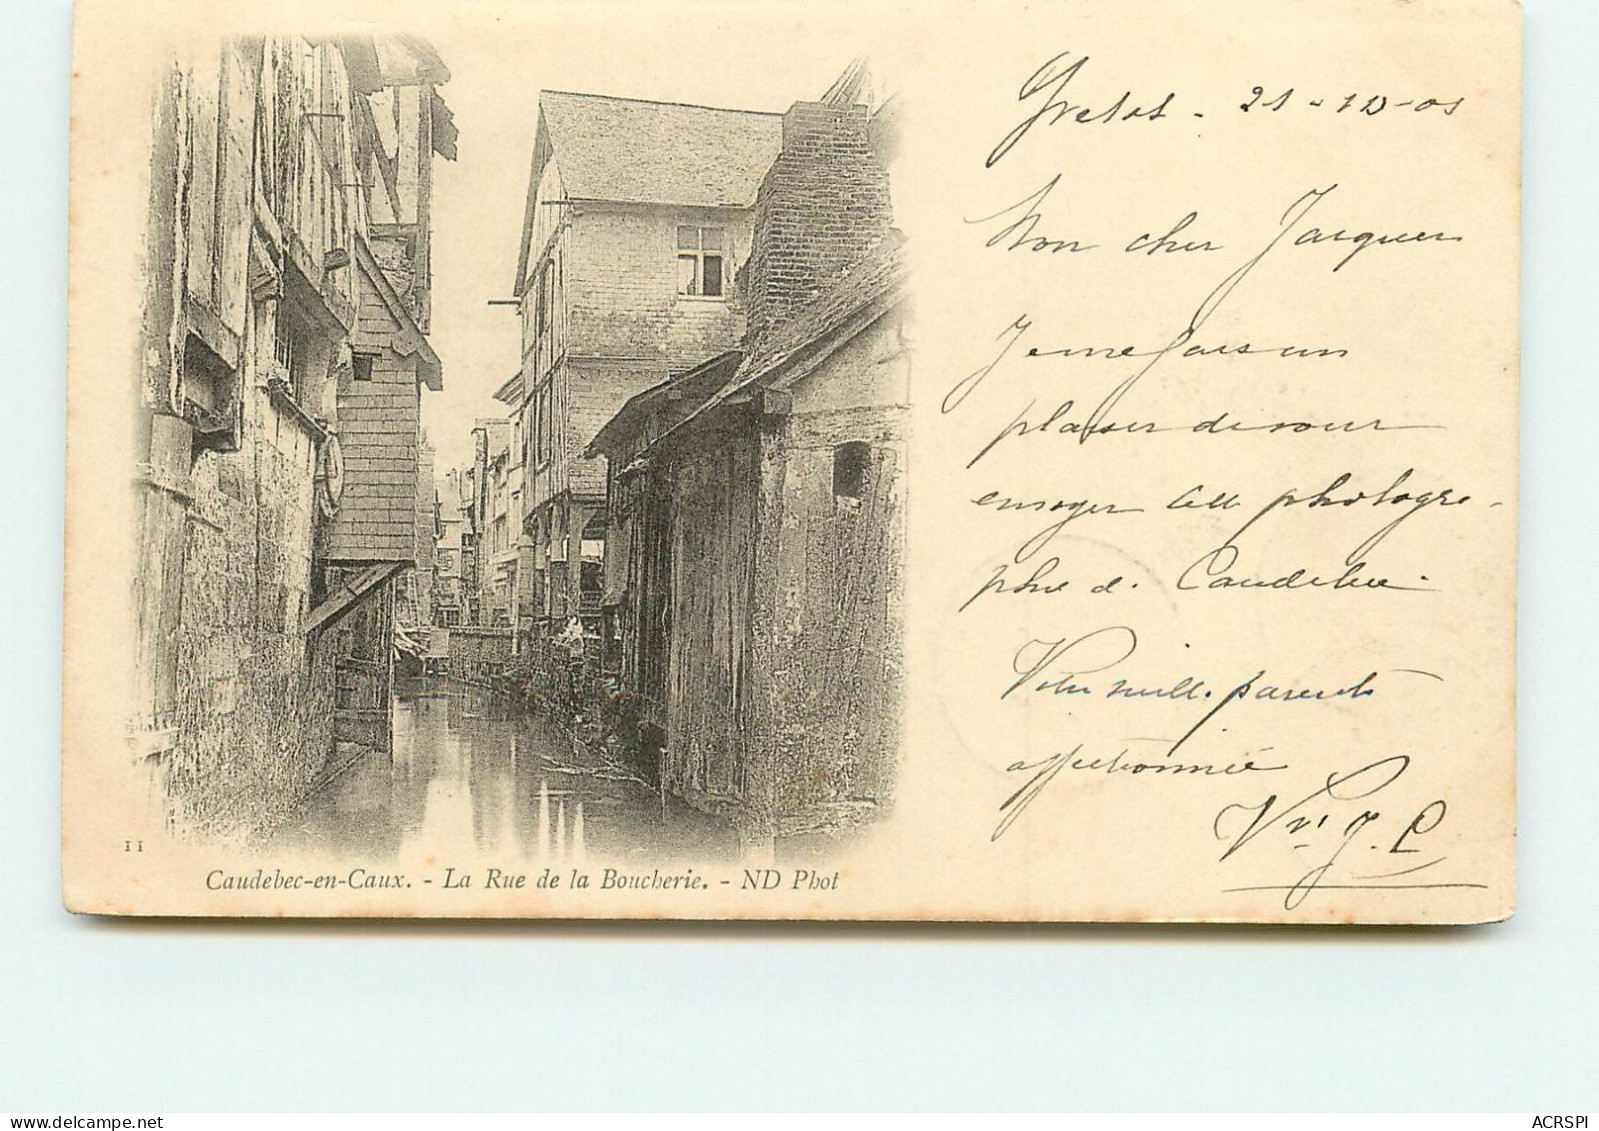 Yvetot - 21-10-01
Mon cher Jacques
Je me fais un
plaisir de vous
envoyer cette photogra-
phie de Caudebec.
mille
affectionnée
11
Caudebec-en-Caux. - La Rue de la Boucherie. - ND Phot
ACRSPI